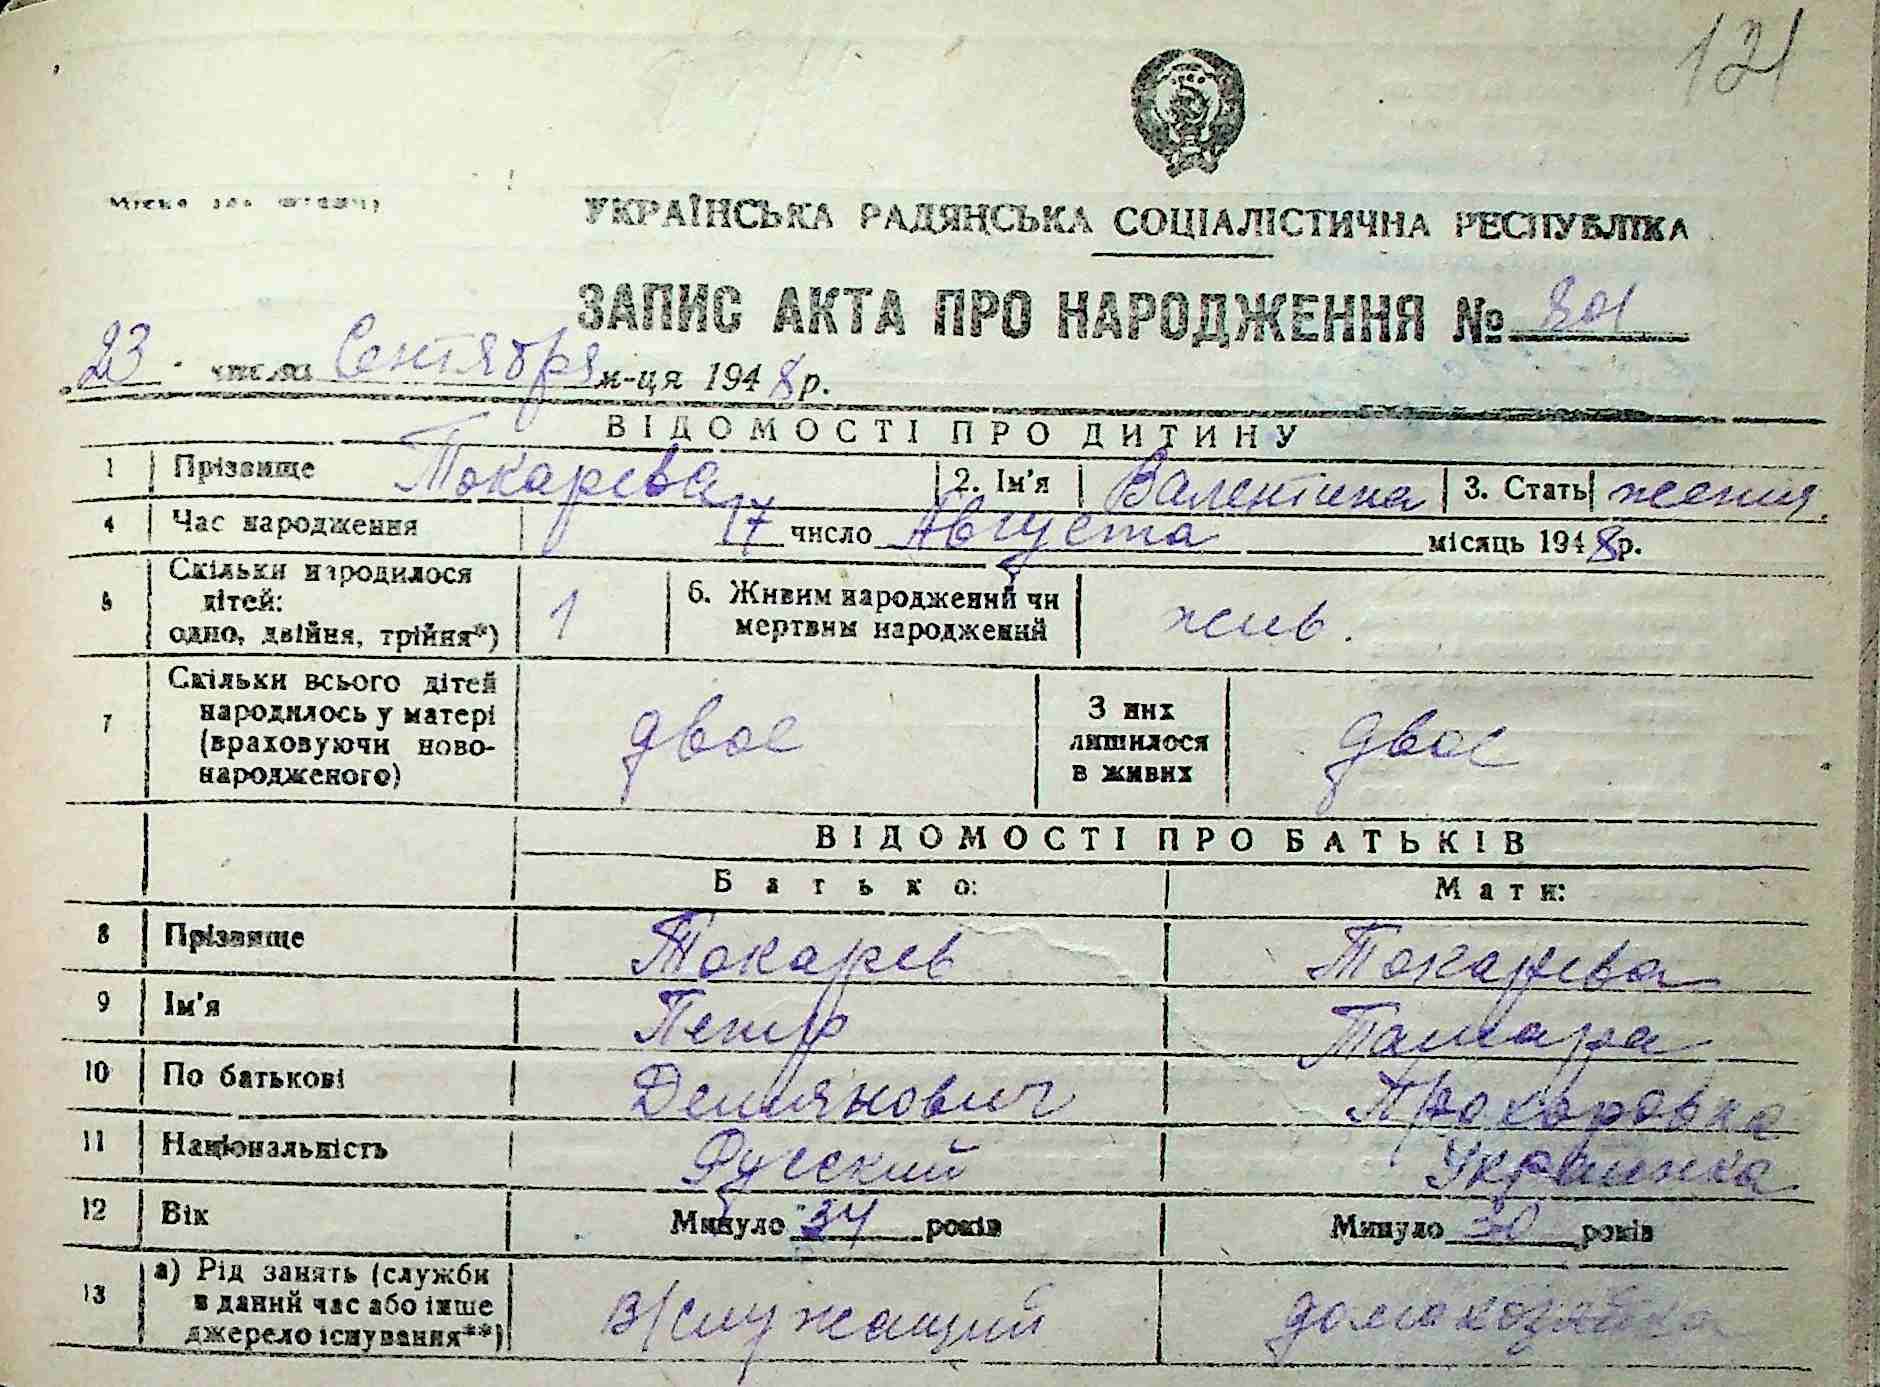 121
УКРАЇНСЬКА РАДЯНСЬКА СОЦІАЛІСТИЧНА РЕСПУБЛІКА
ЗАПИС АКТА ПРО НАРОДЖЕННЯ № 801
„23 числа Сентября м-ця 1948 р.
ВІДОМОСТІ ПРО ДИТИНУ
1 Прізвище Токарева 2. Ім'я Валентина 3. Стать женск.
4 Час народження 17 число Августа місяць 1948 р.
5 Скільки народилося дітей: одно, двійня, трійня*) 1 6. Живим народжений чи мертвим народжений жив.
7 Скільки всього дітей народилось у матері (враховуючи новонародженого) двое З них лишилося в живих двое
ВІДОМОСТІ ПРО БАТЬКІВ
Батько: Мати:
8 Прізвище Токарев Токарева
9 Ім'я Петр Тамара
10 По батькові Демянович Прокоровна
11 Національність Русский Украинка
12 Вік Минуло 34 років Минуло 30 років
13 а) Рід занять (служби в даний час або інше джерело існування**) в/служащий домохозяйка